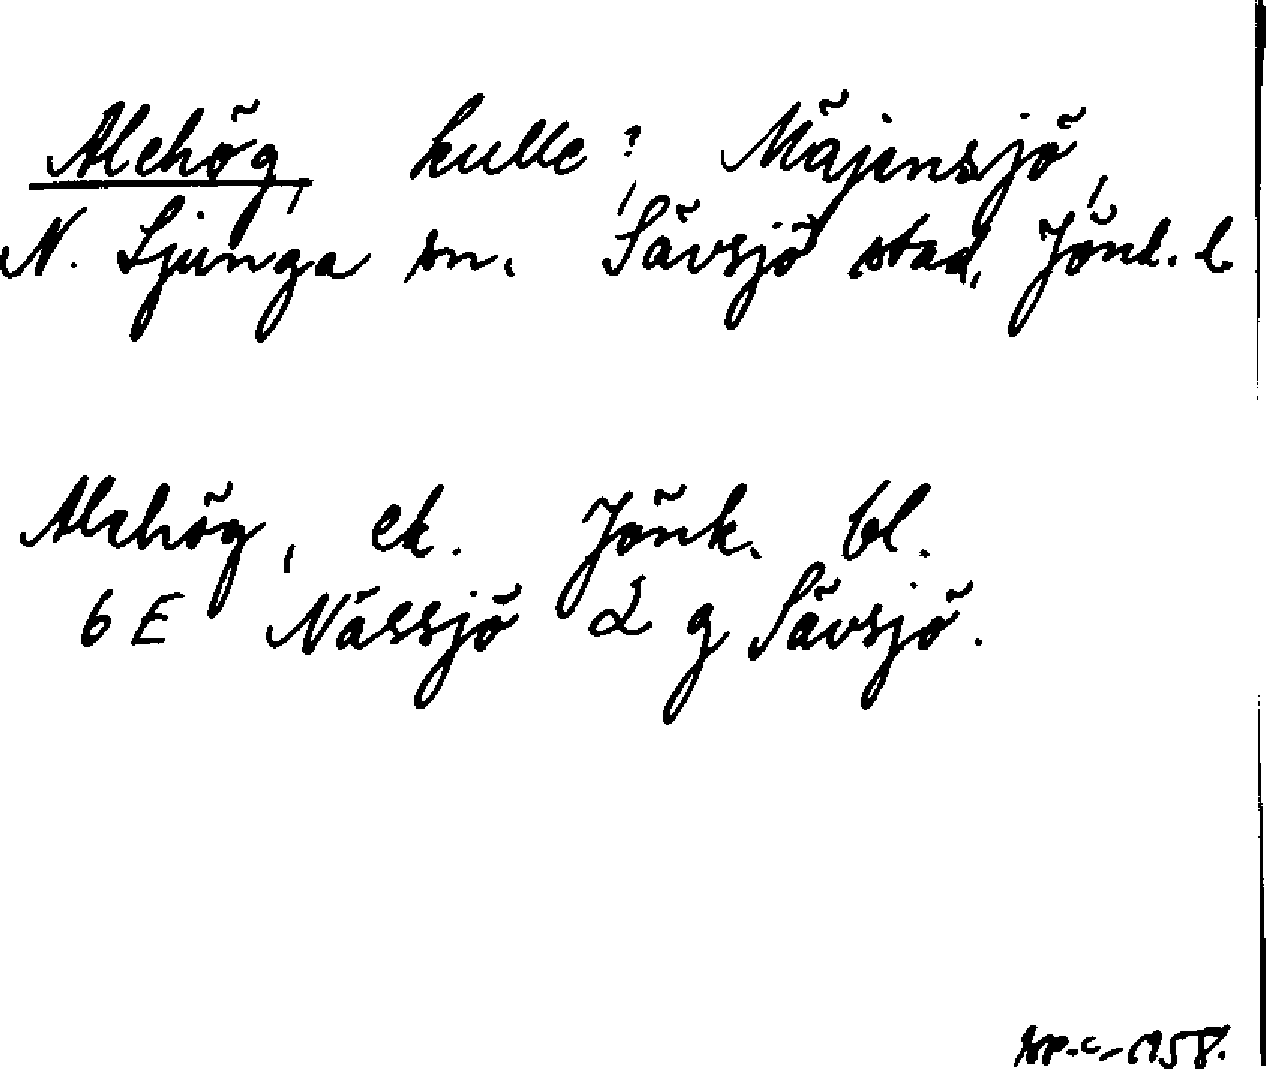 Alehög, kulle?, Mäjensjö,
N. Ljunga sn. Sävsjö stad, Jönk. l
Alehög, ek. Jönk. bl.
6 E Nässjö 2 g Sävsjö.
1958.